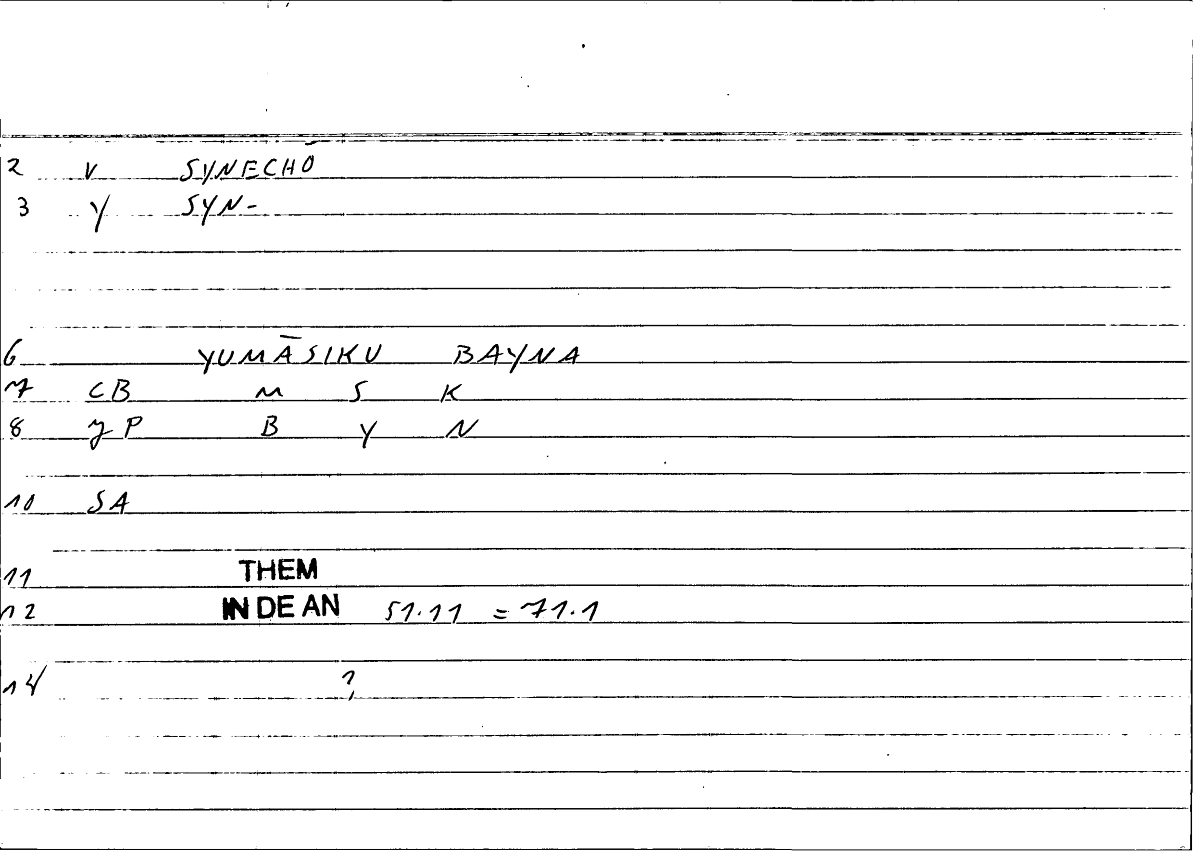 2 V SYNECHŌ
3 Y SYN-
6 YUMĀSIKU BAYNA
7 CB M S K
8 YP B Y N
10 SA
11 THEM
12 IN DE AN 51.11 = 71.1
14 ?